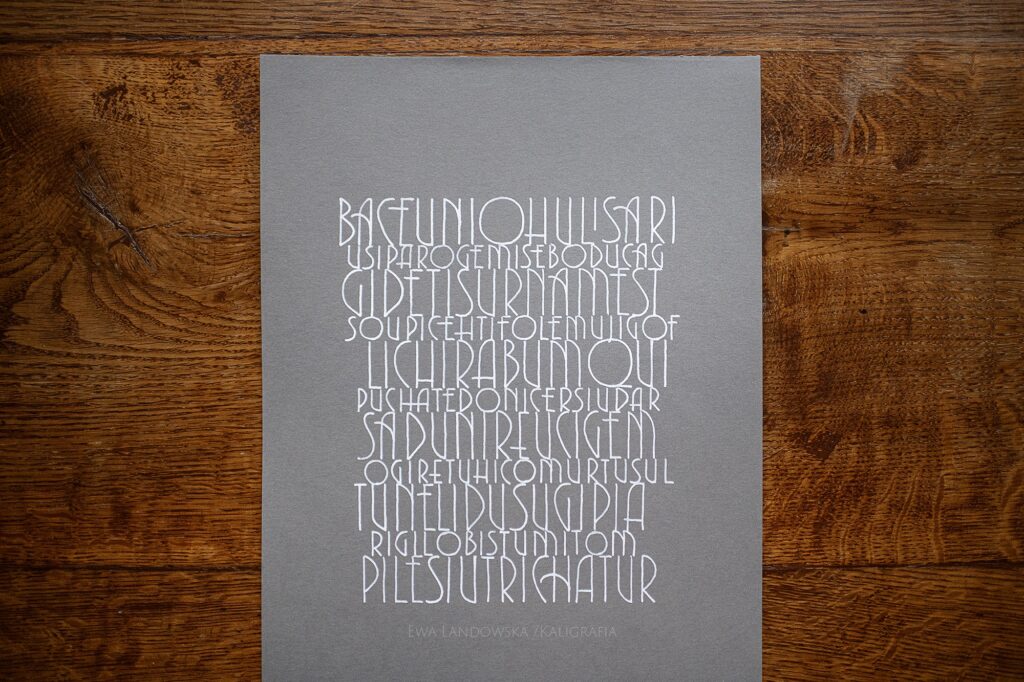 BACEUNIQHULISARI
USIPAROGEMISEBODUCAG
GIDETISURNAMEST
SOUPICEHTIFOLEMUIGOF
LICHIRABUMQUI
PUSHATEDONICERSIUPAR
SADUNIREUCIGEM
OGIRETUHICOMURTUSUL
TUNEUDUSUGIPIA
RIGILOBISTUMITOM
PILESIUTRICHATUR
EWA LANDOWSKA /KALIGRAFIA